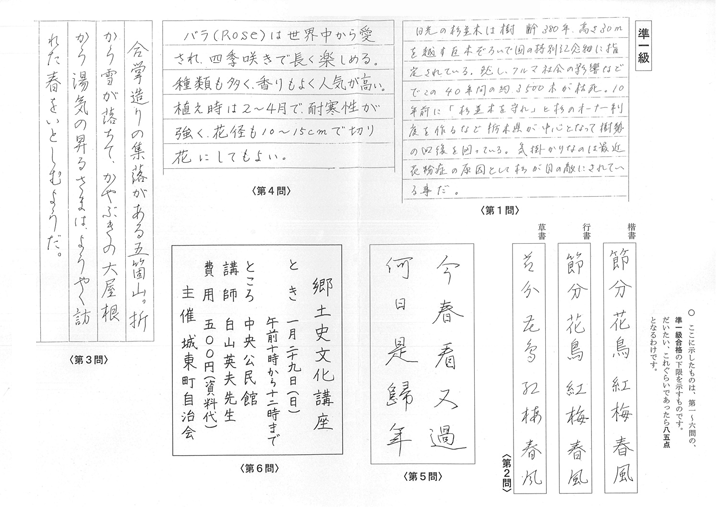 準一級
日光の杉並木は樹齢380年、高さ30m
を越す巨木ぞろいで国の特別記念物に指
定されている。然し、クルマ社会の影響など
でこの40年間の約3500本が枯死。10
年前に「杉並木を守れ」と杉のオーナー制
度を作るなど栃木県が中心となって樹勢
の回復を図っている。気掛かりなのは最近
花粉症の原因として杉が目の敵にされてい
る事だ。
〈第1問〉
バラ(Rose)は世界中から愛
され、四季咲きで長く楽しめる。
種類も多く、香りもよく人気が高い。
植え時は2〜4月で、耐寒性が
強く、花径も10〜15cmで切り
花にしてもよい。
〈第4問〉
合掌造りの集落がある五箇山。折
から雪が落ちて、かやぶきの大屋根
から湯気の昇るさまは、ようやく訪
れた春をいとしむようだ。
〈第3問〉
○ ここに示したものは、第一〜六問の、
準一級合格の下限を示すものです。
だいたい、これぐらいであったら八五点
となるわけです。
楷書
節分 花鳥 紅梅 春風
行書
節分 花鳥 紅梅 春風
草書
節分 花鳥 紅梅 春風
〈第2問〉
今春看又過
何日是歸年
〈第5問〉
郷土史文化講座
とき 一月二十九日(日)
午前十時から十二時まで
ところ 中央公民館
講師 白山英夫先生
費用 五〇〇円(資料代)
主催 城東町自治会
〈第6問〉